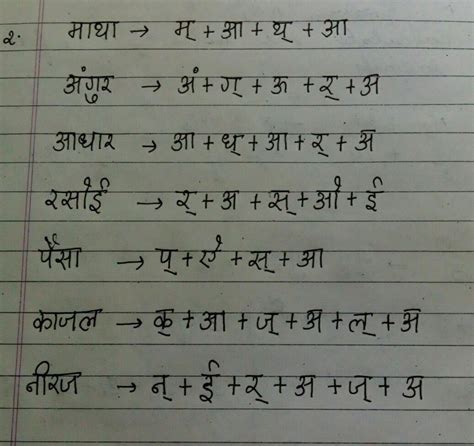 २. माथा → म् + आ + थ् + आ
अंगुर → अं + ग् + ऊ + र् + अ
आधार → आ + ध् + आ + र् + अ
रसोई → र् + अ + स् + ओ + ई
पैसा → प् + ऐ + स् + आ
काजल → क् + आ + ज् + अ + ल् + अ
नीरज → न् + ई + र् + अ + ज् + अ